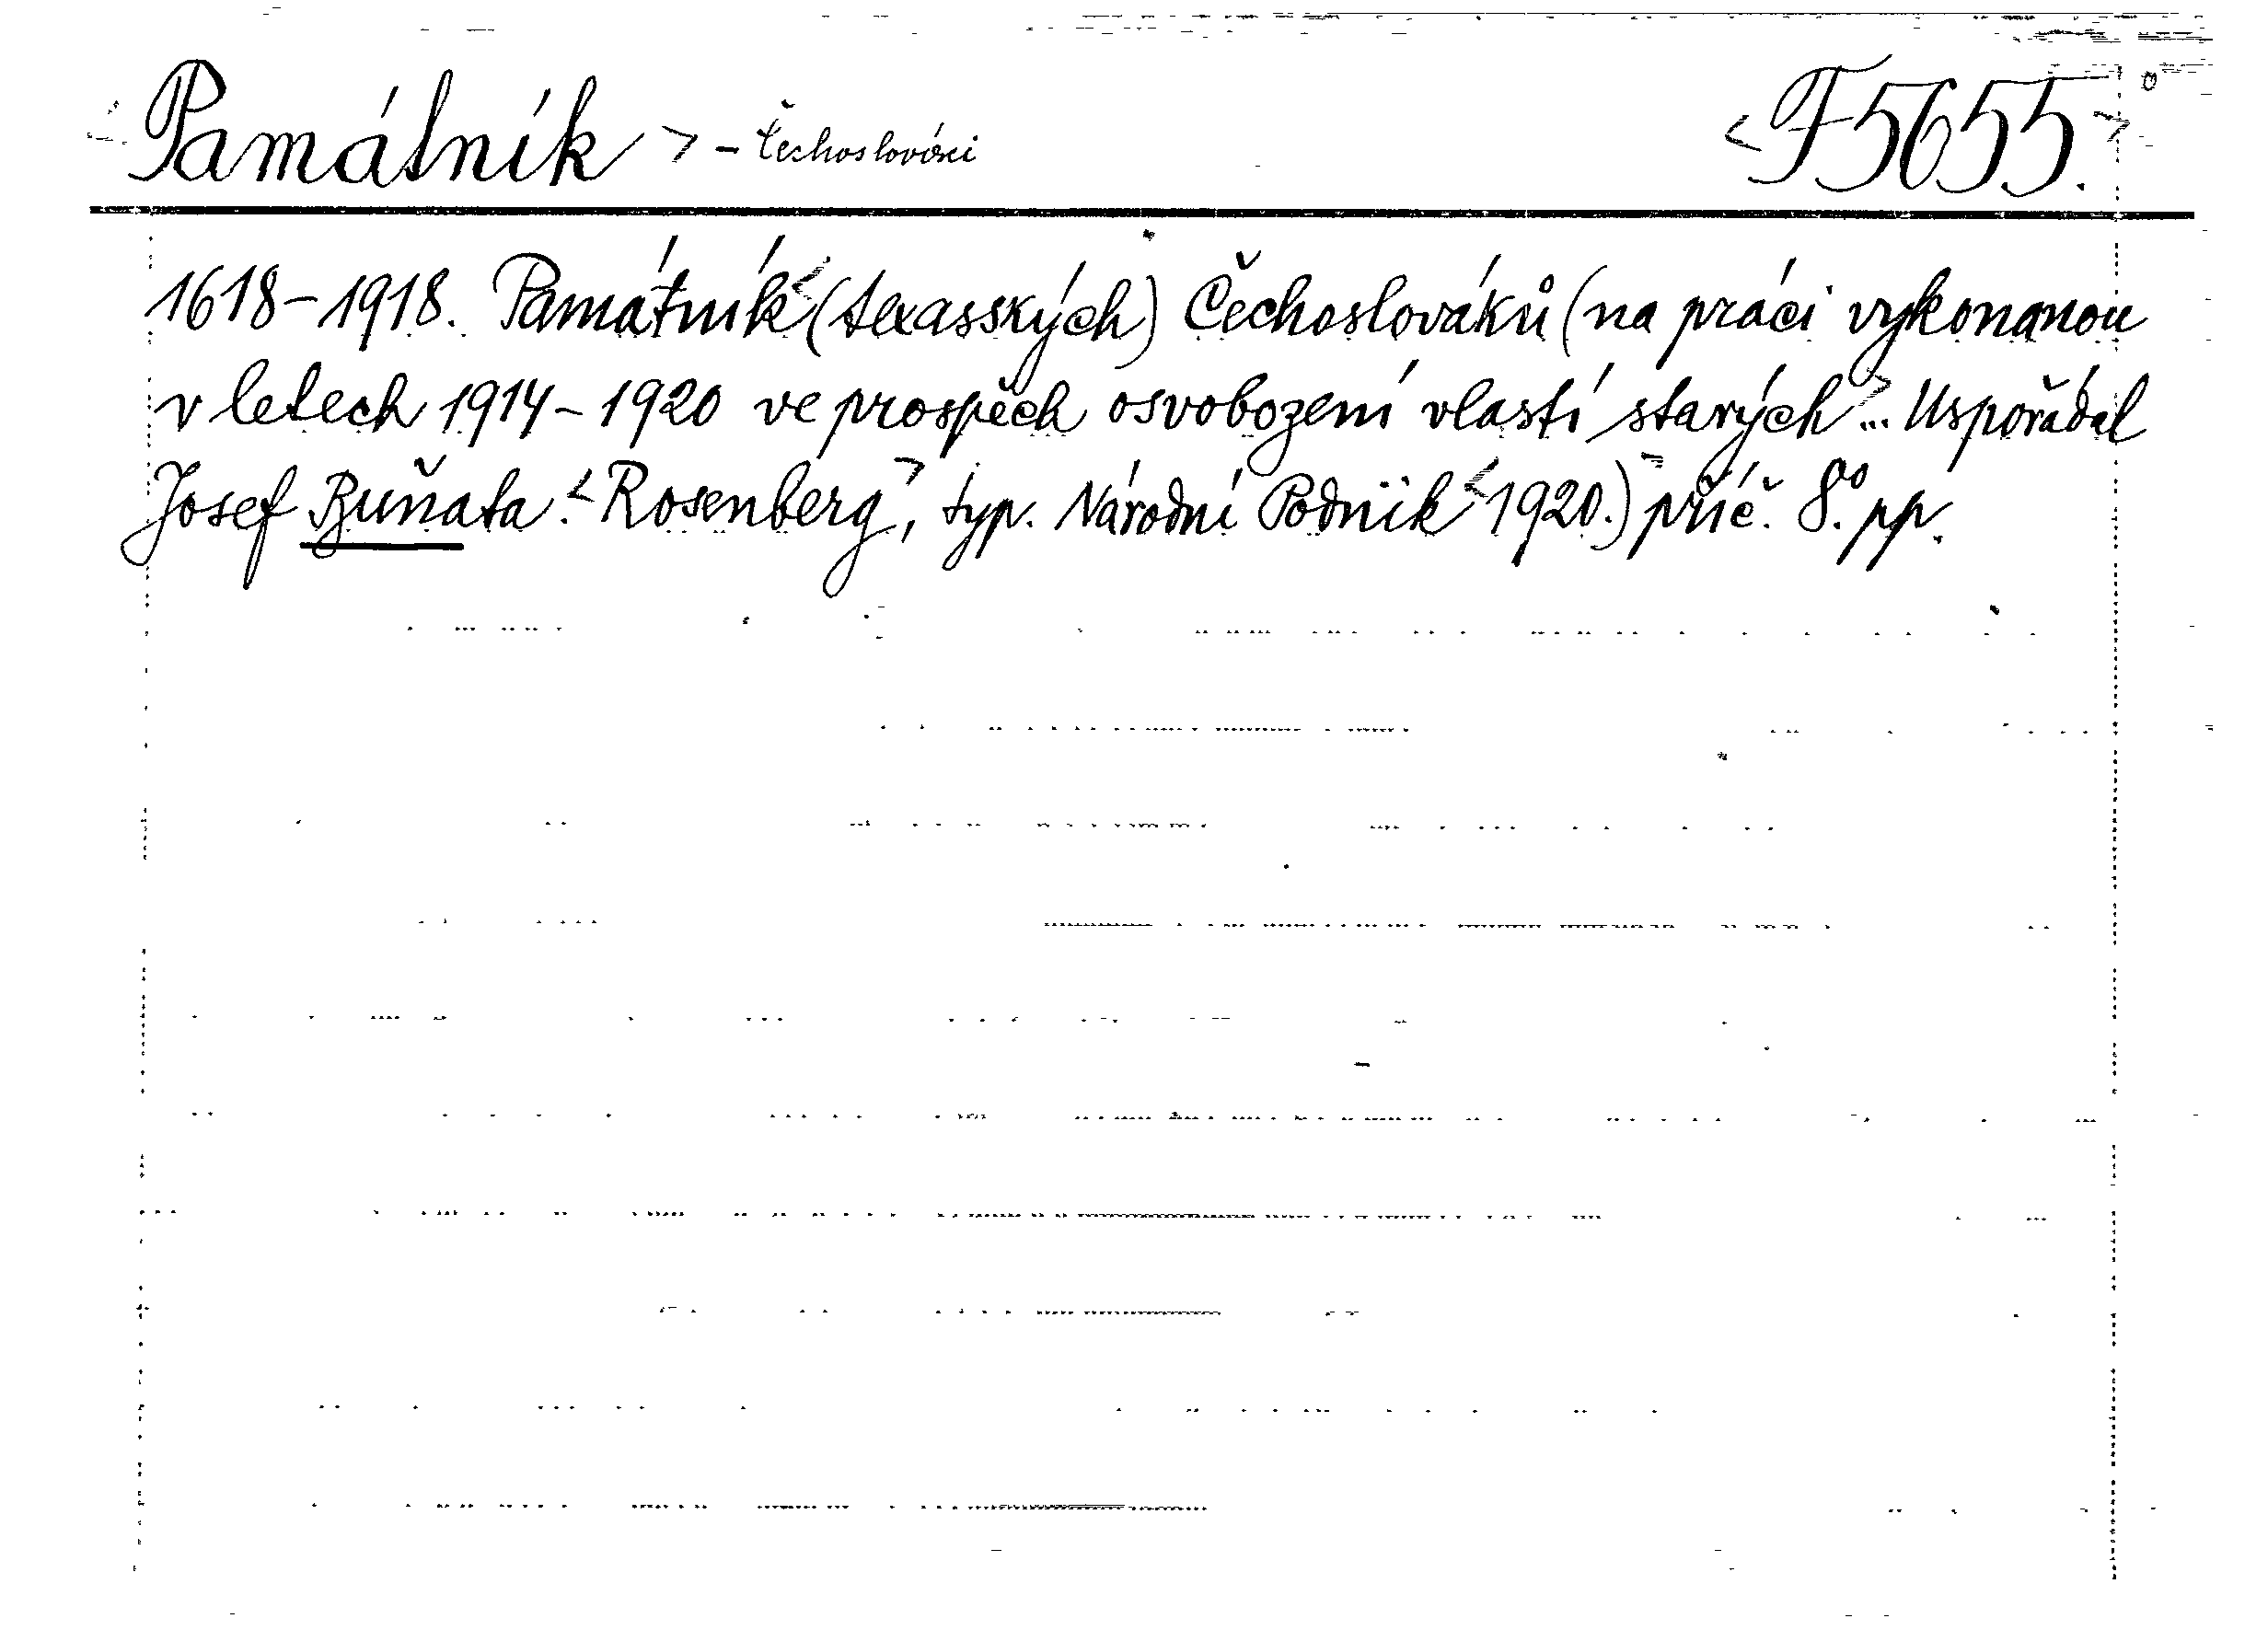 Památník - Čechoslováci F 5655.
1618-1918. Památník (texasských) Čechoslováků (na práci vykonanou
v letech 1914-1920 ve prospěch osvobození vlastí starých... Uspořádal
Josef Buňata. Rosenberg, typ. Národní Podnik 1920.) příč. 8°. pp.